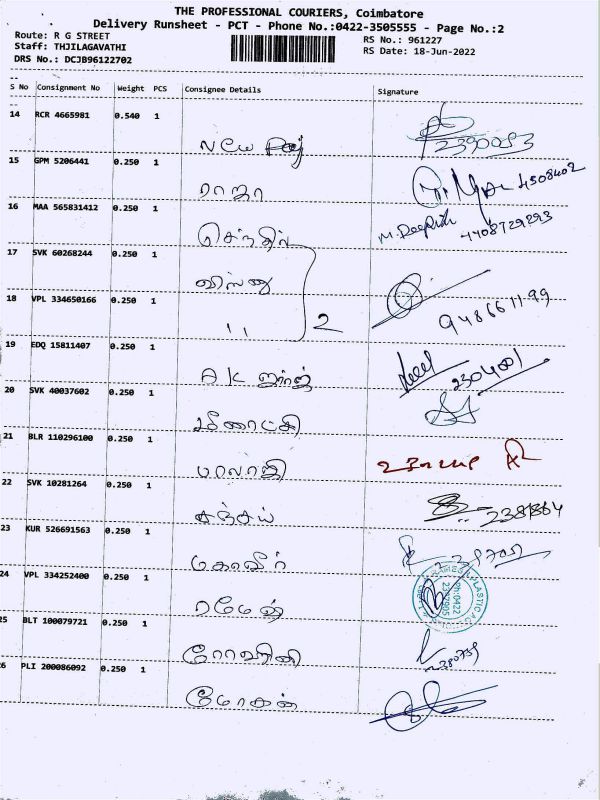 THE PROFESSIONAL COURIERS, Coimbatore
Delivery Runsheet - PCT - Phone No.:0422-3505555 - Page No.:2
Route: R G STREET
RS No.: 961227
Staff: THJILAGAVATHI
RS Date: 18-Jun-2022
DRS No.: DCJB96122702
S No Consignment No Weight PCS Consignee Details Signature
14 RCR 4665981 0.540 1
2390093
15 GPM 5206441 0.250 1
ராஜா 4508402
16 MAA 565831412 0.250 1
செந்தில் M. Deepthi
17 SVK 60268244 0.250 1
விஸ்ணு
18 VPL 334650166 0.250 1
" 2 9486661199
19 EDQ 15811407 0.250 1
A K ஜார்ஜ் 2304001
20 SVK 40037602 0.250 1
மீனாட்சி
21 BLR 110296100 0.250 1
பாலாஜி
22 SVK 10281264 0.250 1
சஞ்சய்
23 KUR 526691563 0.250 1
மகாவீர்
24 VPL 334252400 0.250 1
ரமேஷ் PLASTIC Ph:0422
25 BLT 100079721 0.250 1
2380739
26 PLI 200086092 0.250 1
மோகன்